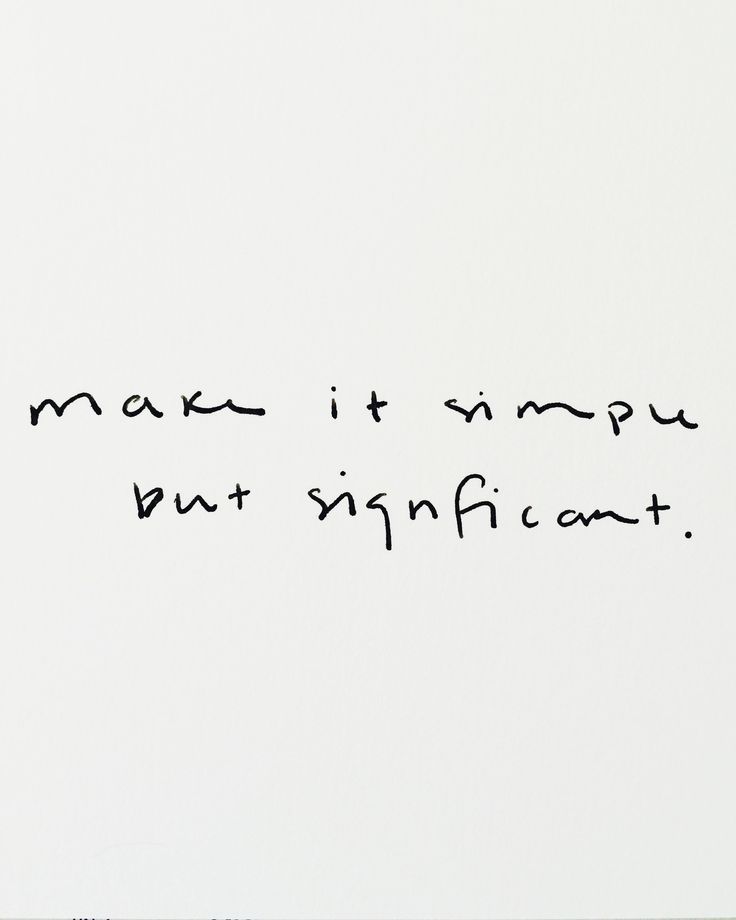 make it simple
but signficant.